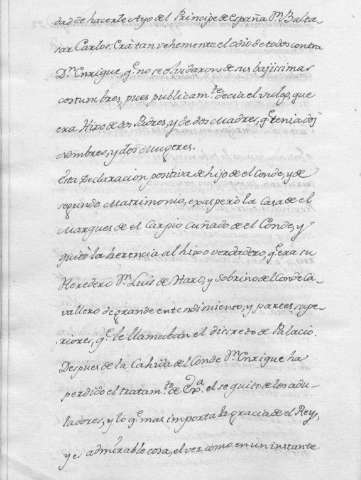 dad de hacerle Ayo del Principe de España Dn. Balta-
sar Carlos. Era tan vehemente el odio de todos contra
Dn. Enrique, qe. no se olvidaron de sus bajisimas
costumbres, pues publicamte. decia el vulgo, que
era Hijo de dos Padres, y de dos Madres, qe. tenia dos
nombres, y dos Mugeres.
Esta Declaracion positiva de hijo de el Conde, y de
segundo Matrimonio, exasperó la Casa de el
Marques de el Carpio Cuñado de el Conde, y
quitò la herencia al hijo verdadero, qe. era su
Heredero Dn. Luis de Haro, y Sobrino de el Conde Ca-
vallero de grande entendimiento, y partes supe-
riores, qe. le llamaban el discreto de Palacio.
Despues de la Cahida de el Conde Dn. Enrique ha
perdido el tratamto. de Exa. el sequito de los adu-
ladores, y lo qe. mas importa la gracia de el Rey,
y es admirable cosa, el ver como en un instante